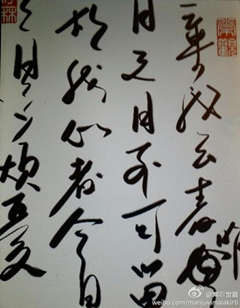 棄我去者昨
日之日不可留
亂我心者今日
之日多煩憂